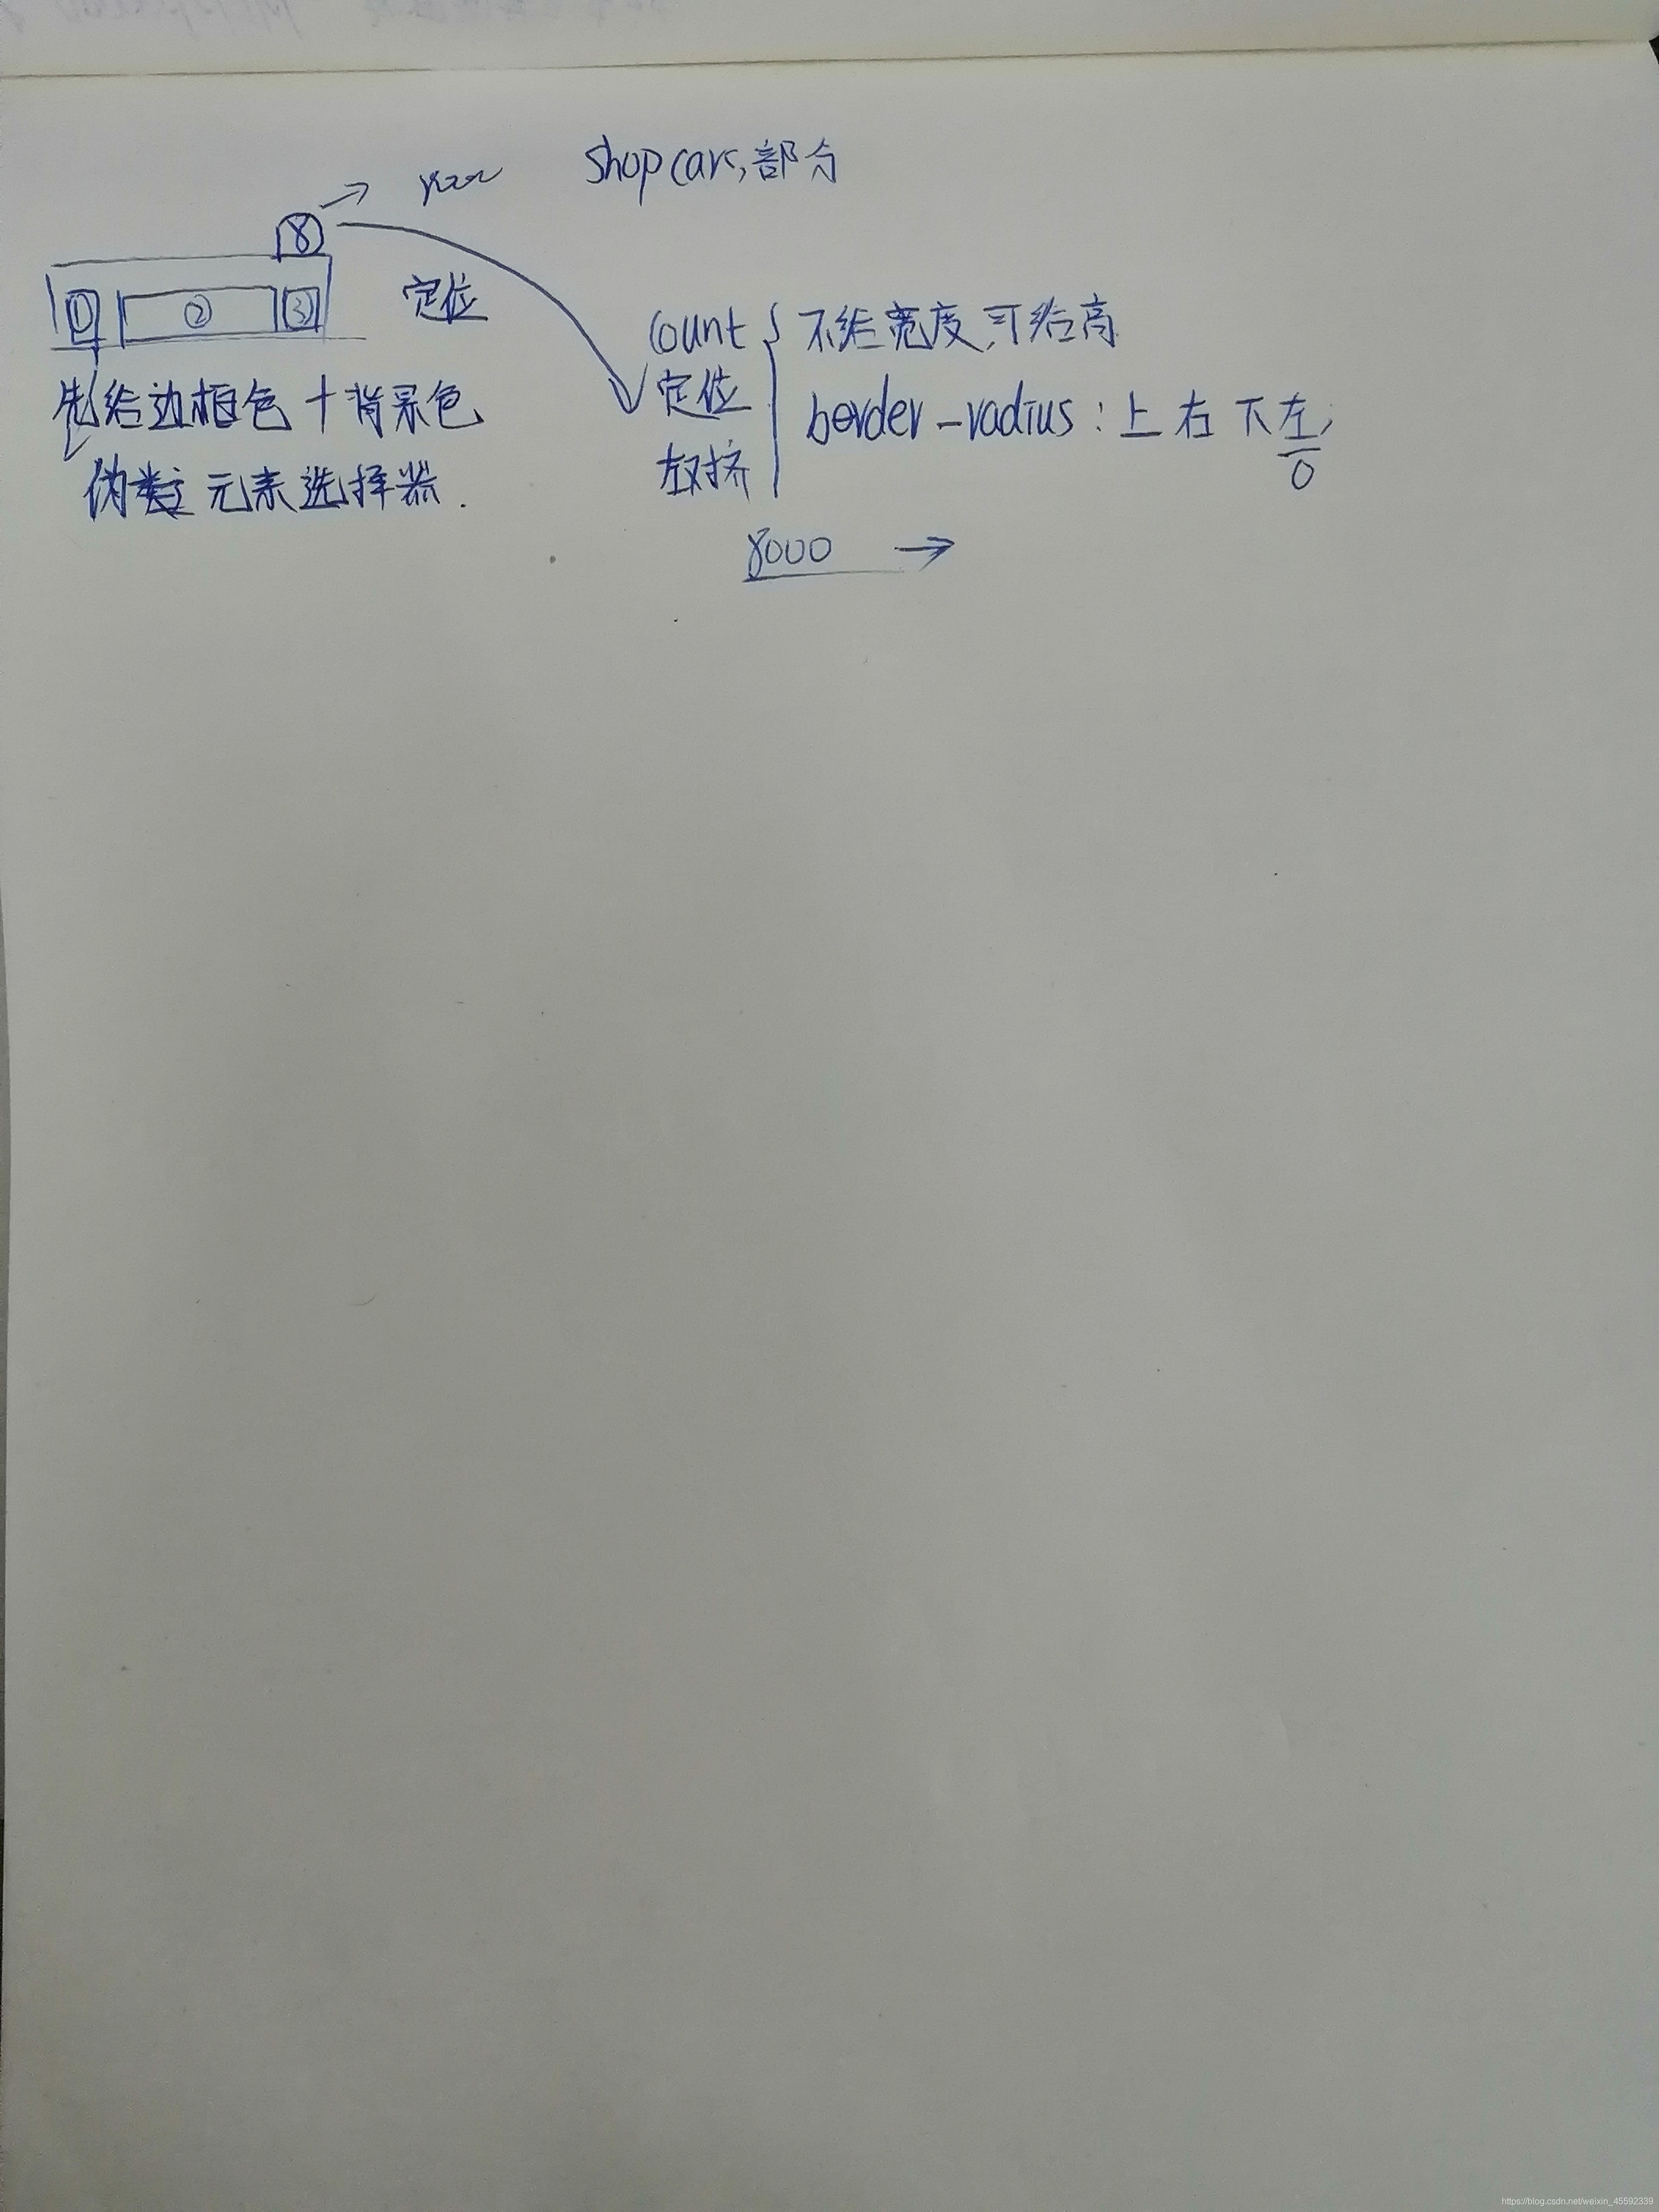 shop cars, 部分
8
① ② ③
定位
先给边框色 + 背景色
伪元素选择器.
count { 不给宽度,可给高
定位
border-radius: 上 右 下 左,
0
8000 →
https://blog.csdn.net/weixin_45592339